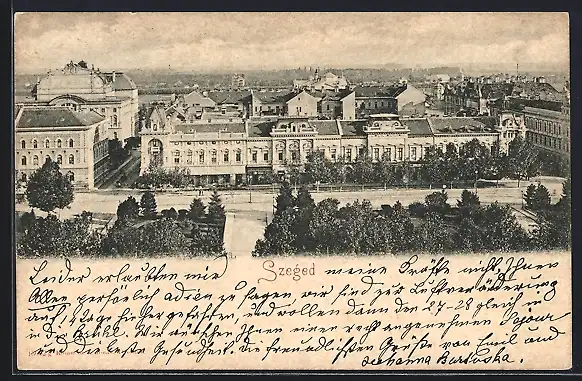 Szeged
Leider erlaubten mir meine Kräfte nicht, Ihnen
Allen persönlich adieu zu sagen, wir sind zur Luftveränderung
auf 8 Tage hieher gefahren, und wollen dann den 27-28 gleich
in die wir wünschen Ihnen einen recht angenehmen Sejour
und die beste Gesundheit. die freundlichsten Grüße von Emil und
Johanna Bartuska.